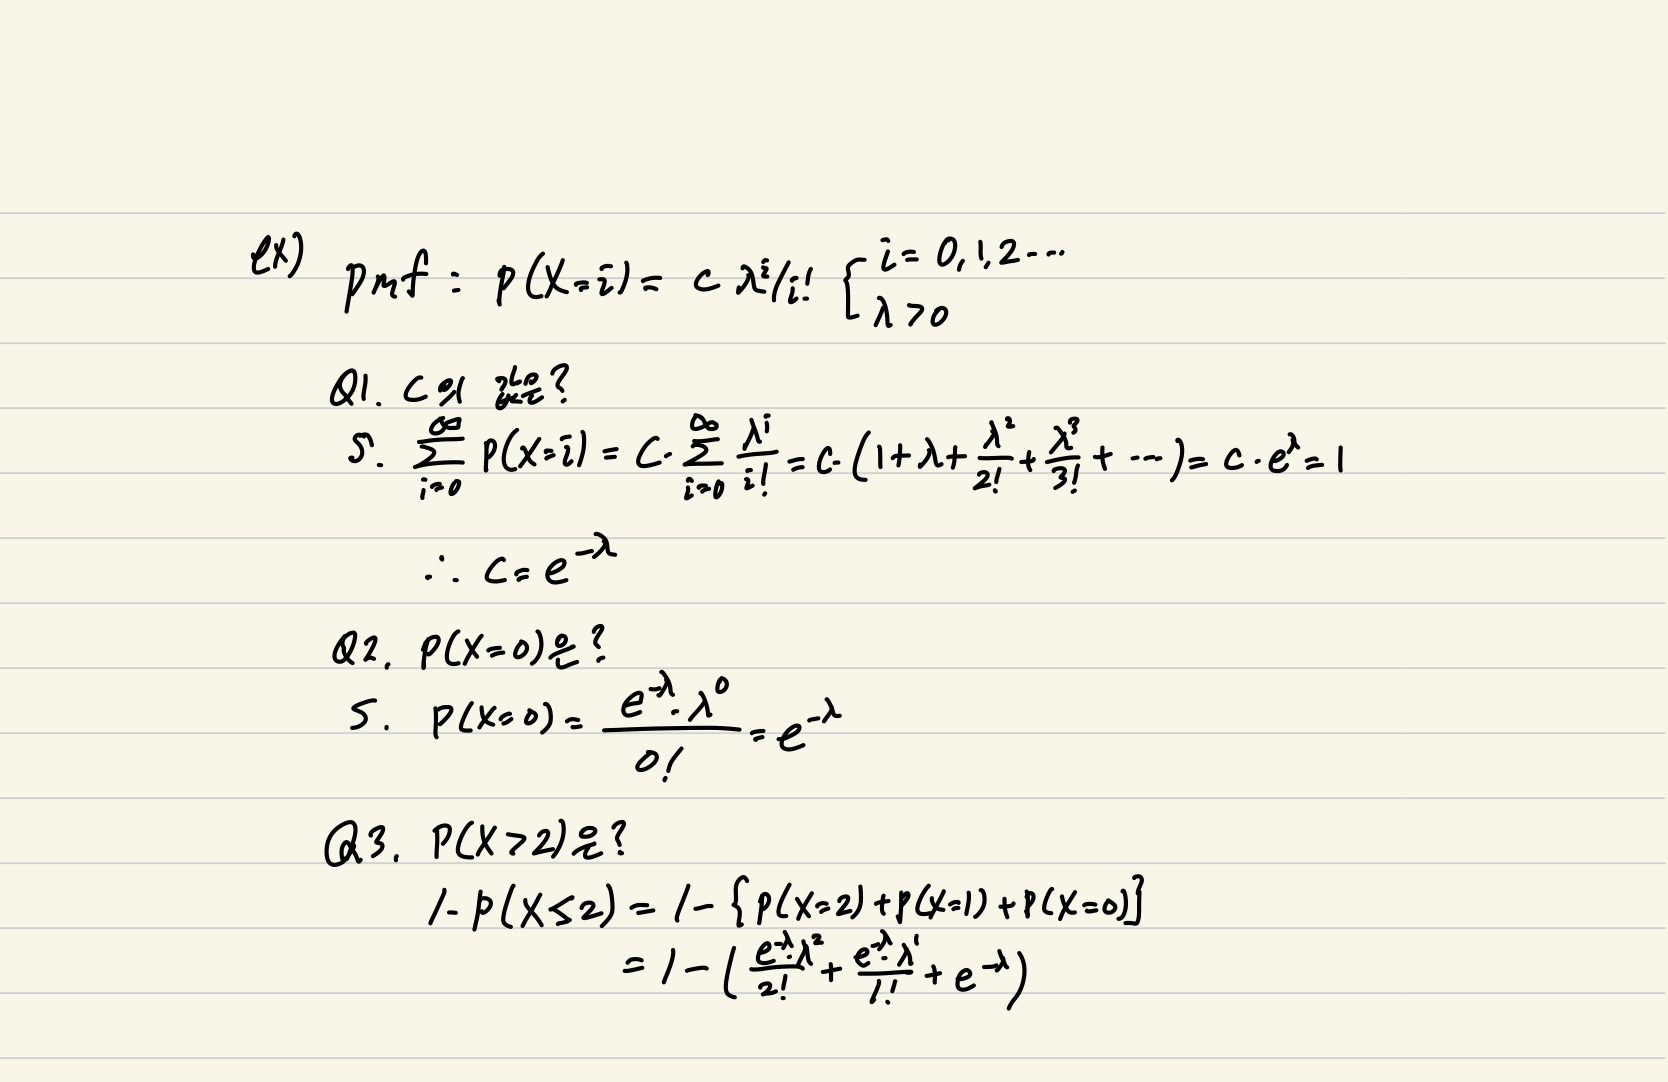 ex) pmf : p(X=i) = c λ^i/i! { i = 0,1,2 ⋯
λ > 0
Q1. C의 값은?
S. ∑_{i=0}^{∞} p(X=i) = C·∑_{i=0}^{∞} λ^i/i! = C·(1+λ+λ²/2!+λ³/3!+ ⋯) = C·e^λ = 1
∴ C = e^{-λ}
Q2. P(X=0)은?
S. P(X=0) = (e^{-λ}·λ^0)/0! = e^{-λ}
Q3. P(X>2)은?
1-P(X≤2) = 1-{P(X=2)+P(X=1)+P(X=0)}
= 1-(e^{-λ}·λ²/2! + e^{-λ}·λ¹/1! + e^{-λ})